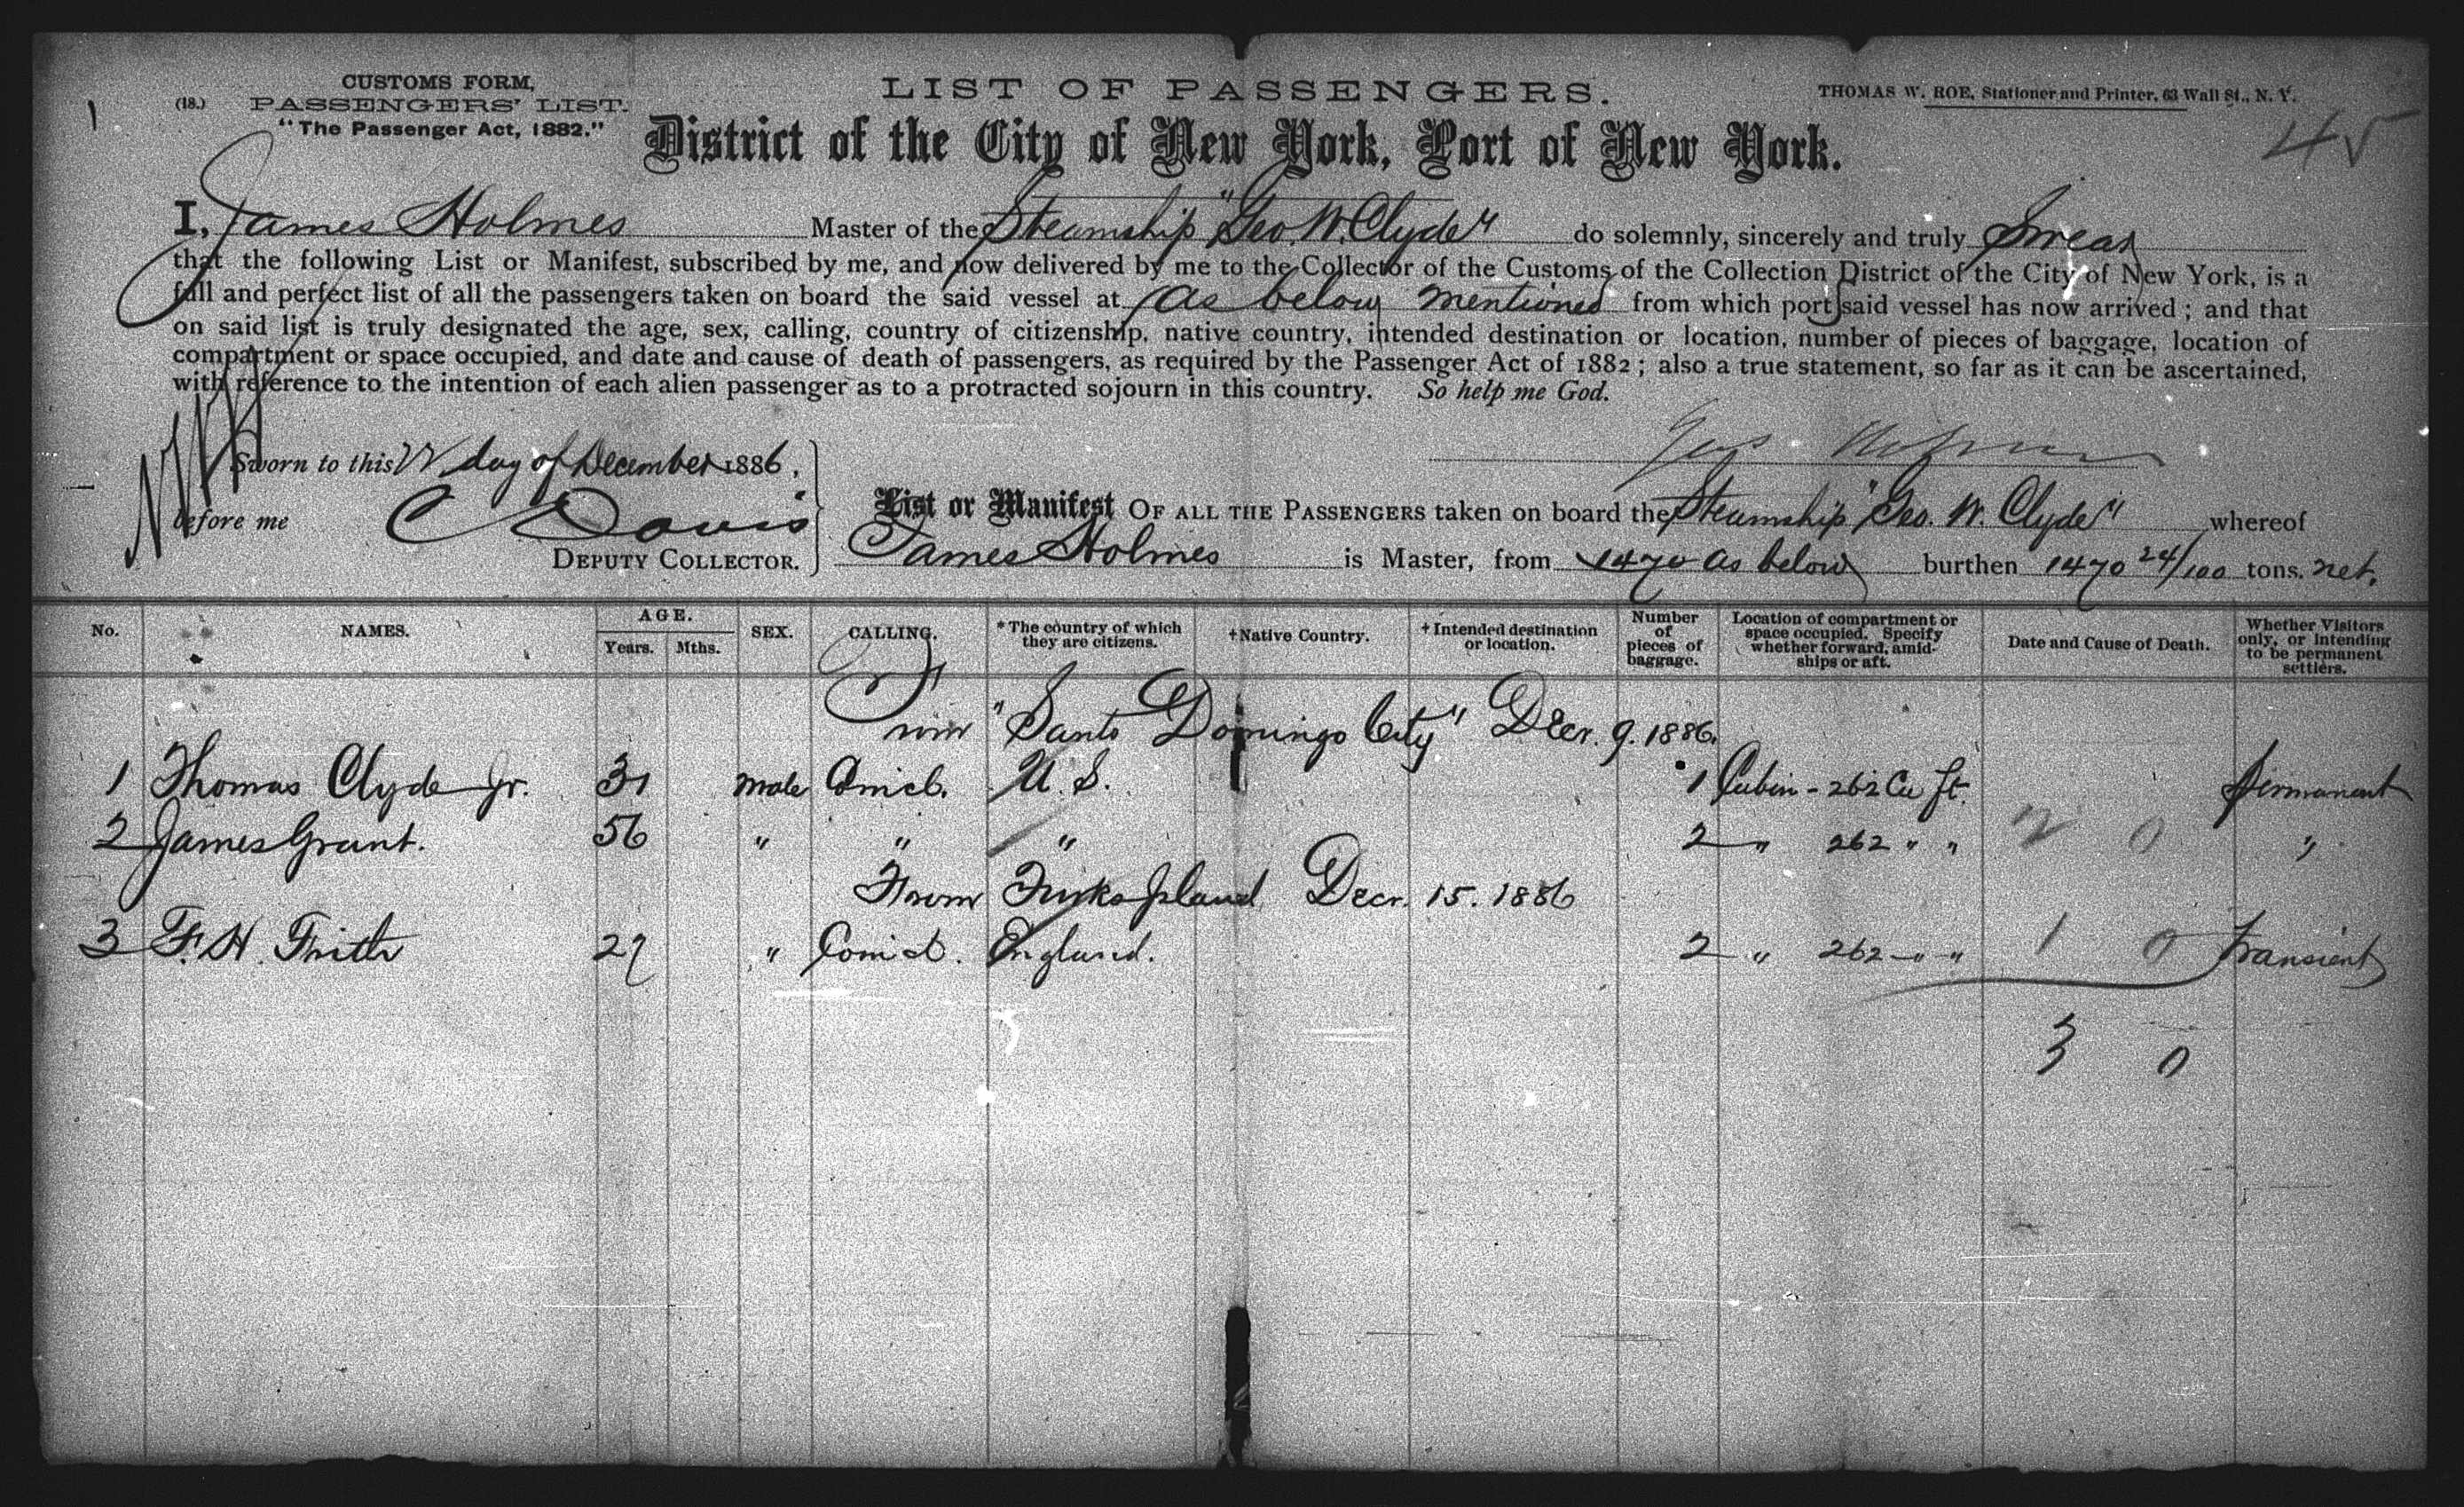 CUSTOMS FORM,
(18.) PASSENGERS' LIST.
"The Passenger Act, 1882."
LIST OF PASSENGERS.
THOMAS W. ROE, Stationer and Printer, 63 Wall St., N. Y.
1
45
District of the City of New York, Port of New York.
I, James Holmes Master of the Steamship "Geo. W. Clyde" do solemnly, sincerely and truly Swear
that the following List or Manifest, subscribed by me, and now delivered by me to the Collector of the Customs of the Collection District of the City of New York, is a
full and perfect list of all the passengers taken on board the said vessel at as below mentioned from which port said vessel has now arrived; and that
on said list is truly designated the age, sex, calling, country of citizenship, native country, intended destination or location, number of pieces of baggage, location of
compartment or space occupied, and date and cause of death of passengers, as required by the Passenger Act of 1882; also a true statement, so far as it can be ascertained,
with reference to the intention of each alien passenger as to a protracted sojourn in this country. So help me God.
Sworn to this day of December 1886,
Jas Holmes
before me C Davis
DEPUTY COLLECTOR.
List or Manifest OF ALL THE PASSENGERS taken on board the Steamship "Geo. W. Clyde" whereof
James Holmes is Master, from 1470 as below burthen 1470 24/100 tons. net.
No. NAMES. AGE. Years. Mths. SEX. CALLING. *The country of which they are citizens. †Native Country. †Intended destination or location. Number of pieces of baggage. Location of compartment or space occupied. Specify whether forward, amidships or aft. Date and Cause of Death. Whether Visitors only, or intending to be permanent settlers.
From "Santo Domingo City" Decr. 9. 1886.
1 Thomas Clyde Jr. 31 Male U. S. 1 Cabin - 262 Cu ft. Permanent
2 James Grant. 56 " " " 2 " 262 " " 2 0 "
From Turks Island Decr. 15. 1886
3 F. H. Frith 27 " England. 2 " 262 " " 1 0 Transient
3 0